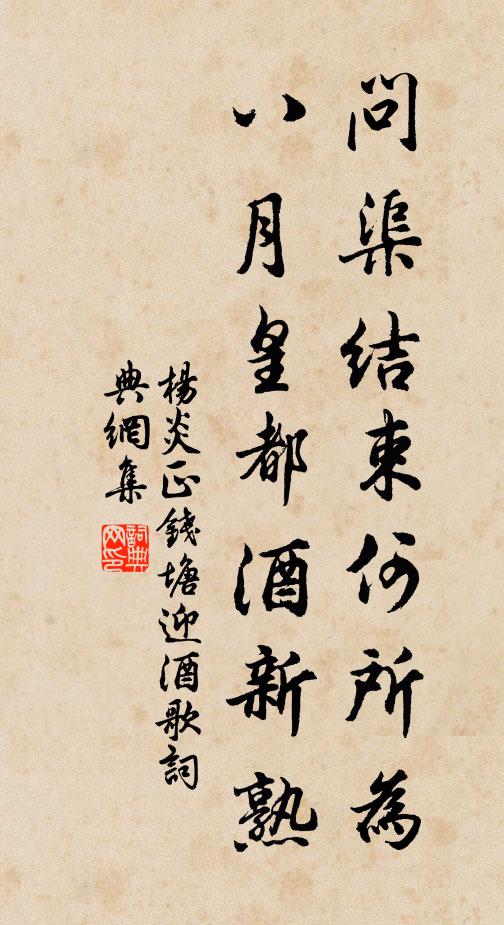 問渠結束何所為
八月皇都酒新熟
楊炎正錢塘迎酒歌詞
典網集
詞典網印